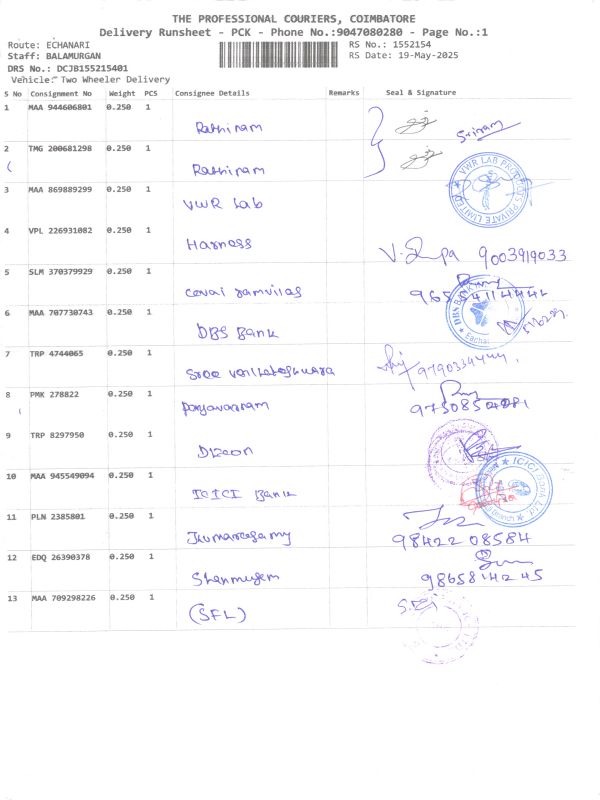 THE PROFESSIONAL COURIERS, COIMBATORE
Delivery Runsheet - PCK - Phone No.:9047080280 - Page No.:1
Route: ECHANARI RS No.: 1552154
Staff: BALAMURGAN RS Date: 19-May-2025
DRS No.: DCJB155215401
Vehicle: Two Wheeler Delivery
S No Consignment No Weight PCS Consignee Details Remarks Seal & Signature
1 MAA 944606801 0.250 1
Rathiram Sriram
2 TMG 200681298 0.250 1
Rathiram
3 MAA 869889299 0.250 1
VWR Lab
4 VPL 226931082 0.250 1
Harness 9003919033
5 SLM 370379929 0.250 1
6 MAA 707730743 0.250 1
DBS Bank
7 TRP 4744065 0.250 1
Sree 9790334444
8 PMK 278822 0.250 1
9 TRP 8297950 0.250 1
10 MAA 945549094 0.250 1
ICICI Bank
11 PLN 2385801 0.250 1
98422 08584
12 EDQ 26390378 0.250 1
Shanmugam 98658 142 45
13 MAA 709298226 0.250 1
(SFL)